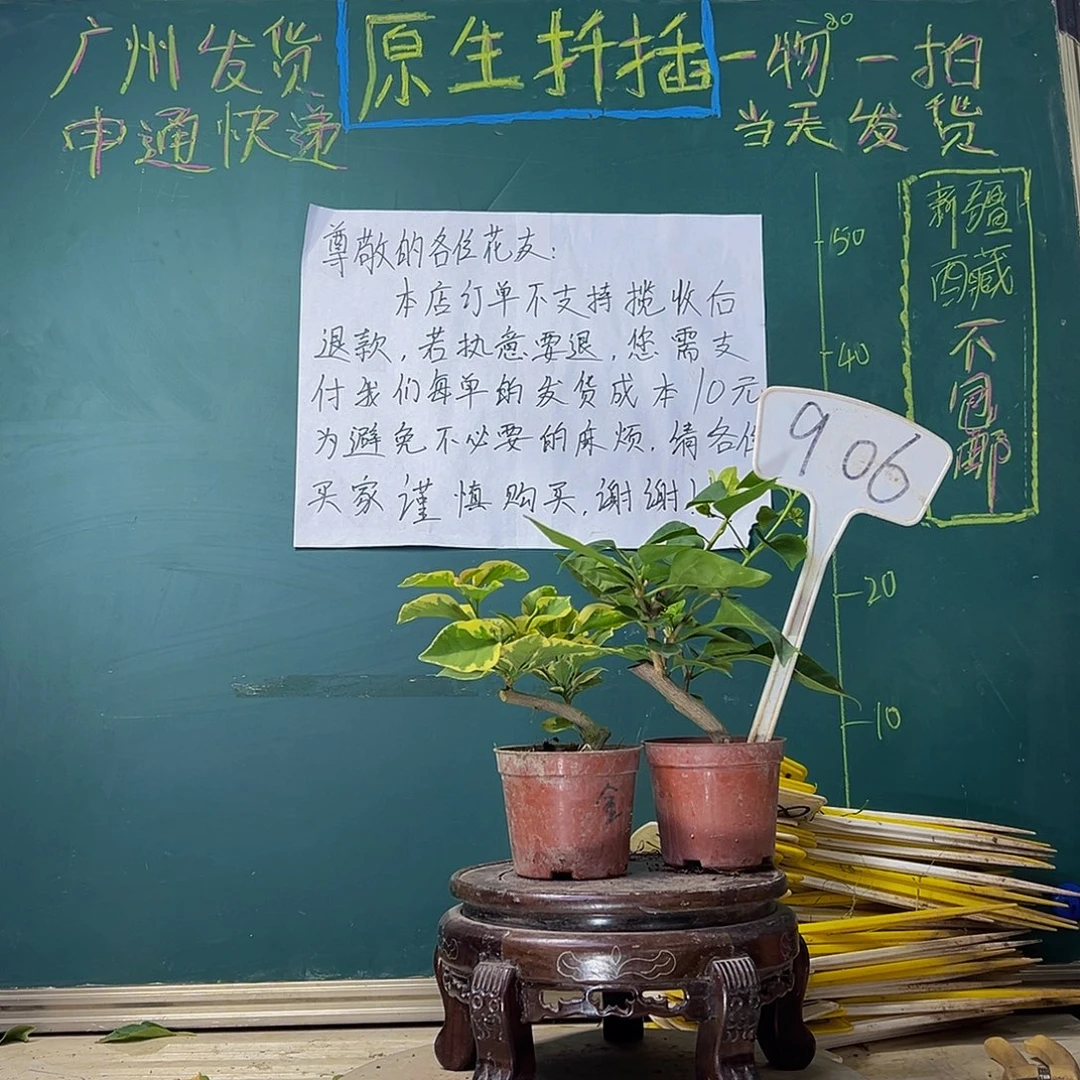 广州发货
申通快递
原生扦插
一物一拍
当天发货
新疆
西藏
不包邮
尊敬的各位花友：
本店订单不支持揽收后
退款，若执意要退，您需支
付我们每单的发货成本10元
为避免不必要的麻烦，请各位
买家谨慎购买，谢谢！
80
50
40
20
10
906
金